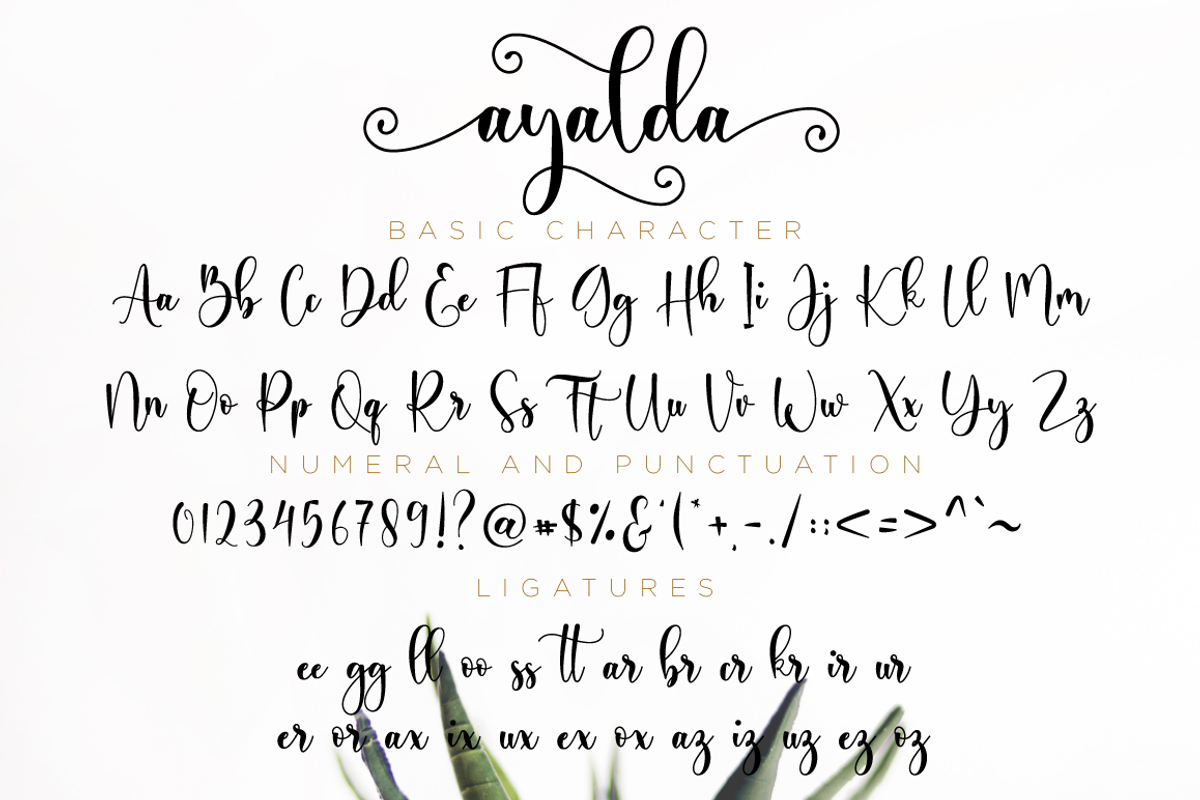 ayalda
BASIC CHARACTER
Aa Bb Cc Dd Ee Ff Gg Hh Ii Jj Kk Ll Mm
Nn Oo Pp Qq Rr Ss Tt Uu Vv Ww Xx Yy Zz
NUMERAL AND PUNCTUATION
0123456789!?@#$%&'(*+,-./:;<=>^`~
LIGATURES
ee gg ll oo ss tt ar br cr kr ir ur
er or ax ix ux ex ox az iz uz ez oz